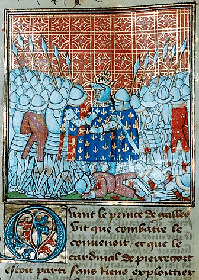 Quant le prince de galles
vit que combatre le
convenoit et que le
cardinal de pierregort
estoit parti sans riens exploitier